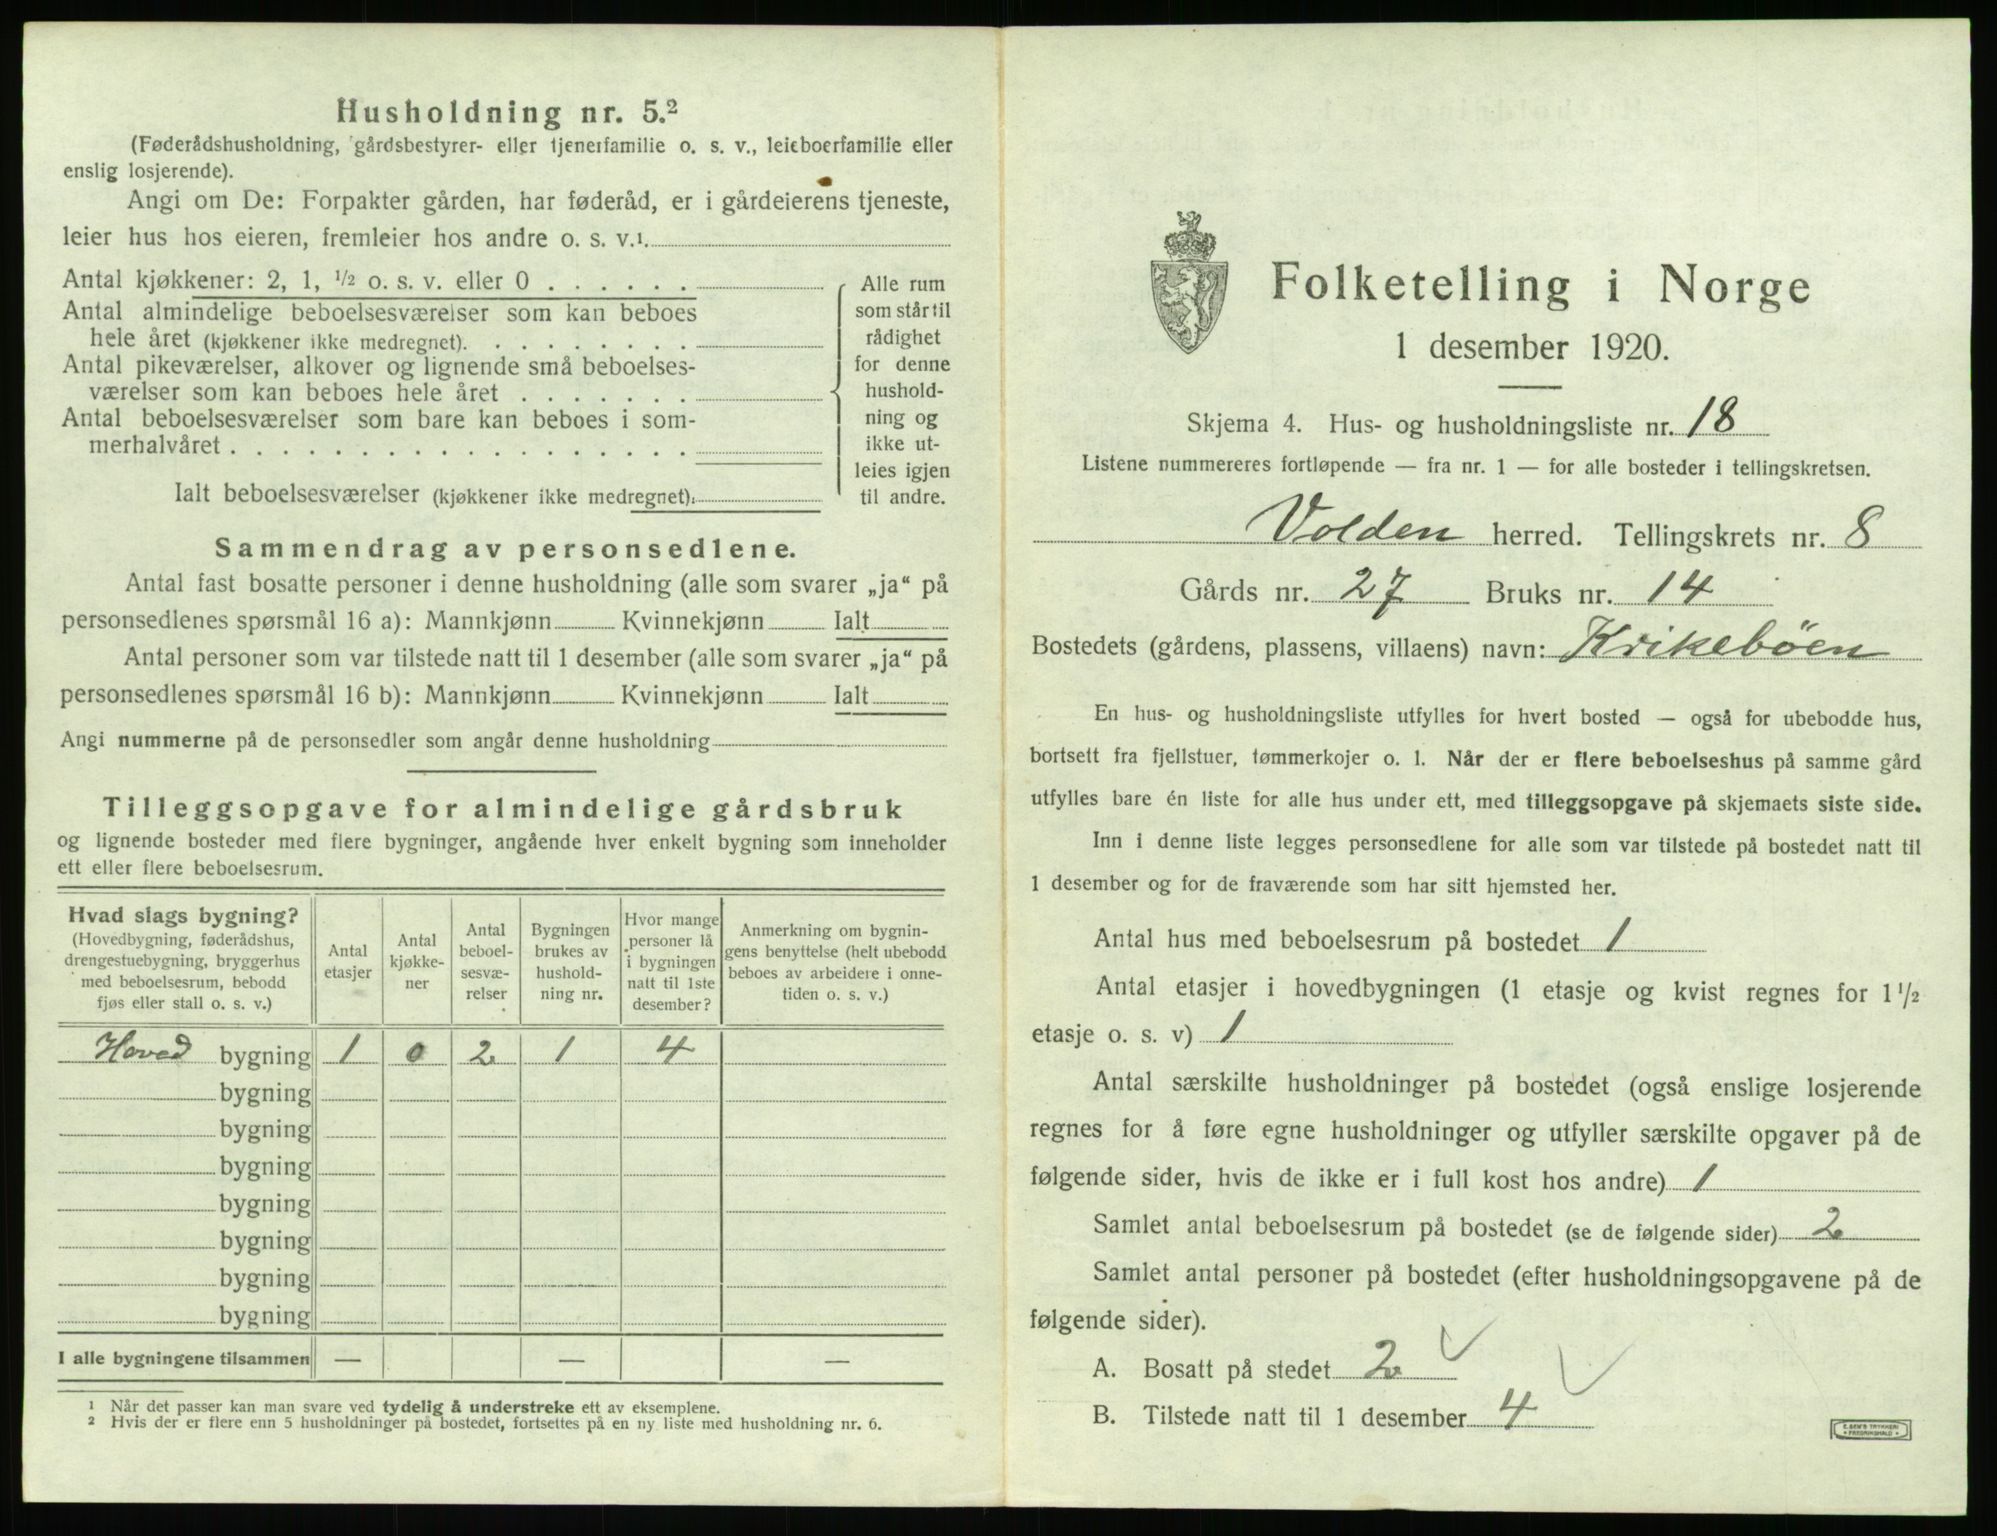 Husholdning nr. 5.²
(Føderådshusholdning, gårdsbestyrer- eller tjenerfamilie o. s. v., leieboerfamilie eller
enslig losjerende).
Angi om De: Forpakter gården, har føderåd, er i gårdeierens tjeneste,
leier hus hos eieren, fremleier hos andre o. s. v.¹
Antal kjøkkener: 2, 1, ½ o. s. v. eller 0
Antal almindelige beboelsesværelser som kan beboes
hele året (kjøkkener ikke medregnet).
Antal pikeværelser, alkover og lignende små beboelses-
værelser som kan beboes hele året
Antal beboelsesværelser som bare kan beboes i som-
merhalvåret
Ialt beboelsesværelser (kjøkkener ikke medregnet).
Alle rum
som står til
rådighet
for denne
hushold-
ning og
ikke ut-
leies igjen
til andre.
Sammendrag av personsedlene.
Antal fast bosatte personer i denne husholdning (alle som svarer „ja“ på
personsedlenes spørsmål 16 a): Mannkjønn Kvinnekjønn Ialt
Antal personer som var tilstede natt til 1 desember (alle som svarer „ja“ på
personsedlenes spørsmål 16 b): Mannkjønn Kvinnekjønn Ialt
Angi nummerne på de personsedler som angår denne husholdning
Tilleggsopgave for almindelige gårdsbruk
og lignende bosteder med flere bygninger, angående hver enkelt bygning som inneholder
ett eller flere beboelsesrum.
Hvad slags bygning?
(Hovedbygning, føderådshus,
drengestuebygning, bryggerhus
med beboelsesrum, bebodd
fjøs eller stall o. s. v.)
Antal
etasjer
Antal
kjøkke-
ner
Antal
beboel-
sesvæ-
relser
Bygningen
brukes av
hushold-
ning nr.
Hvor mange
personer lå
i bygningen
natt til 1ste
desember?
Anmerkning om bygnin-
gens benyttelse (helt ubebodd
beboes av arbeidere i onne-
tiden o. s. v.)
Hoved bygning 1 0 2 1 4
bygning
bygning
bygning
bygning
bygning
bygning
bygning
I alle bygningene tilsammen — — —
¹ Når det passer kan man svare ved tydelig å understreke ett av eksemplene.
² Hvis der er flere enn 5 husholdninger på bostedet, fortsettes på en ny liste med husholdning nr. 6.
Folketelling i Norge
1 desember 1920.
Skjema 4. Hus- og husholdningsliste nr. 18
Listene nummereres fortløpende — fra nr. 1 — for alle bosteder i tellingskretsen.
Volden herred. Tellingskrets nr. 8
Gårds nr. 27 Bruks nr. 14
Bostedets (gårdens, plassens, villaens) navn: Krikebøen
En hus- og husholdningsliste utfylles for hvert bosted — også for ubebodde hus,
bortsett fra fjellstuer, tømmerkojer o. l. Når der er flere beboelseshus på samme gård
utfylles bare én liste for alle hus under ett, med tilleggsopgave på skjemaets siste side.
Inn i denne liste legges personsedlene for alle som var tilstede på bostedet natt til
1 desember og for de fraværende som har sitt hjemsted her.
Antal hus med beboelsesrum på bostedet 1
Antal etasjer i hovedbygningen (1 etasje og kvist regnes for 1½
etasje o. s. v) 1
Antal særskilte husholdninger på bostedet (også enslige losjerende
regnes for å føre egne husholdninger og utfyller særskilte opgaver på de
følgende sider, hvis de ikke er i full kost hos andre) 1
Samlet antal beboelsesrum på bostedet (se de følgende sider) 2
Samlet antal personer på bostedet (efter husholdningsopgavene på de
følgende sider).
A. Bosatt på stedet 2
B. Tilstede natt til 1 desember 4